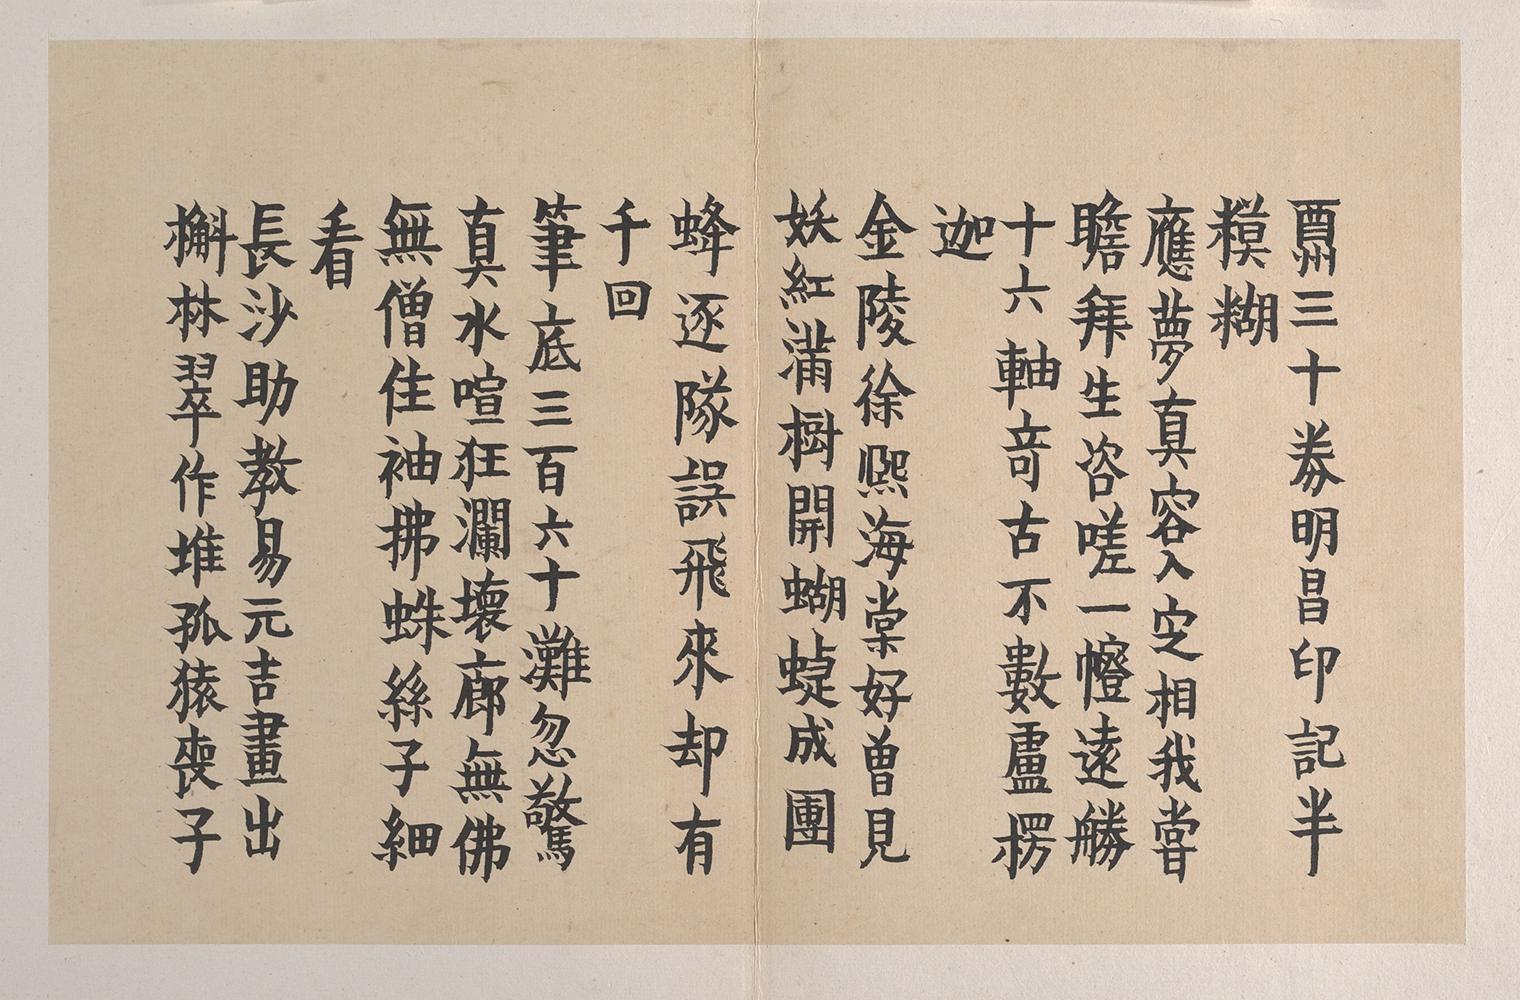 酉州三十券明昌印記半
糢糊
應夢真容入定相我嘗
瞻拜生咨嗟一幢遠勝
十六軸竒古不數盧楞
迦
金陵徐熙海棠好曾見
妖紅滿樹開蝴蜨成團
蜂逐隊誤飛來却有
千回
筆底三百六十灘忽驚
真水喧狂瀾壞廊無佛
無僧住袖拂蛛絲子細
看
長沙助教易元吉畫出
槲林翠作堆孤猿喪子